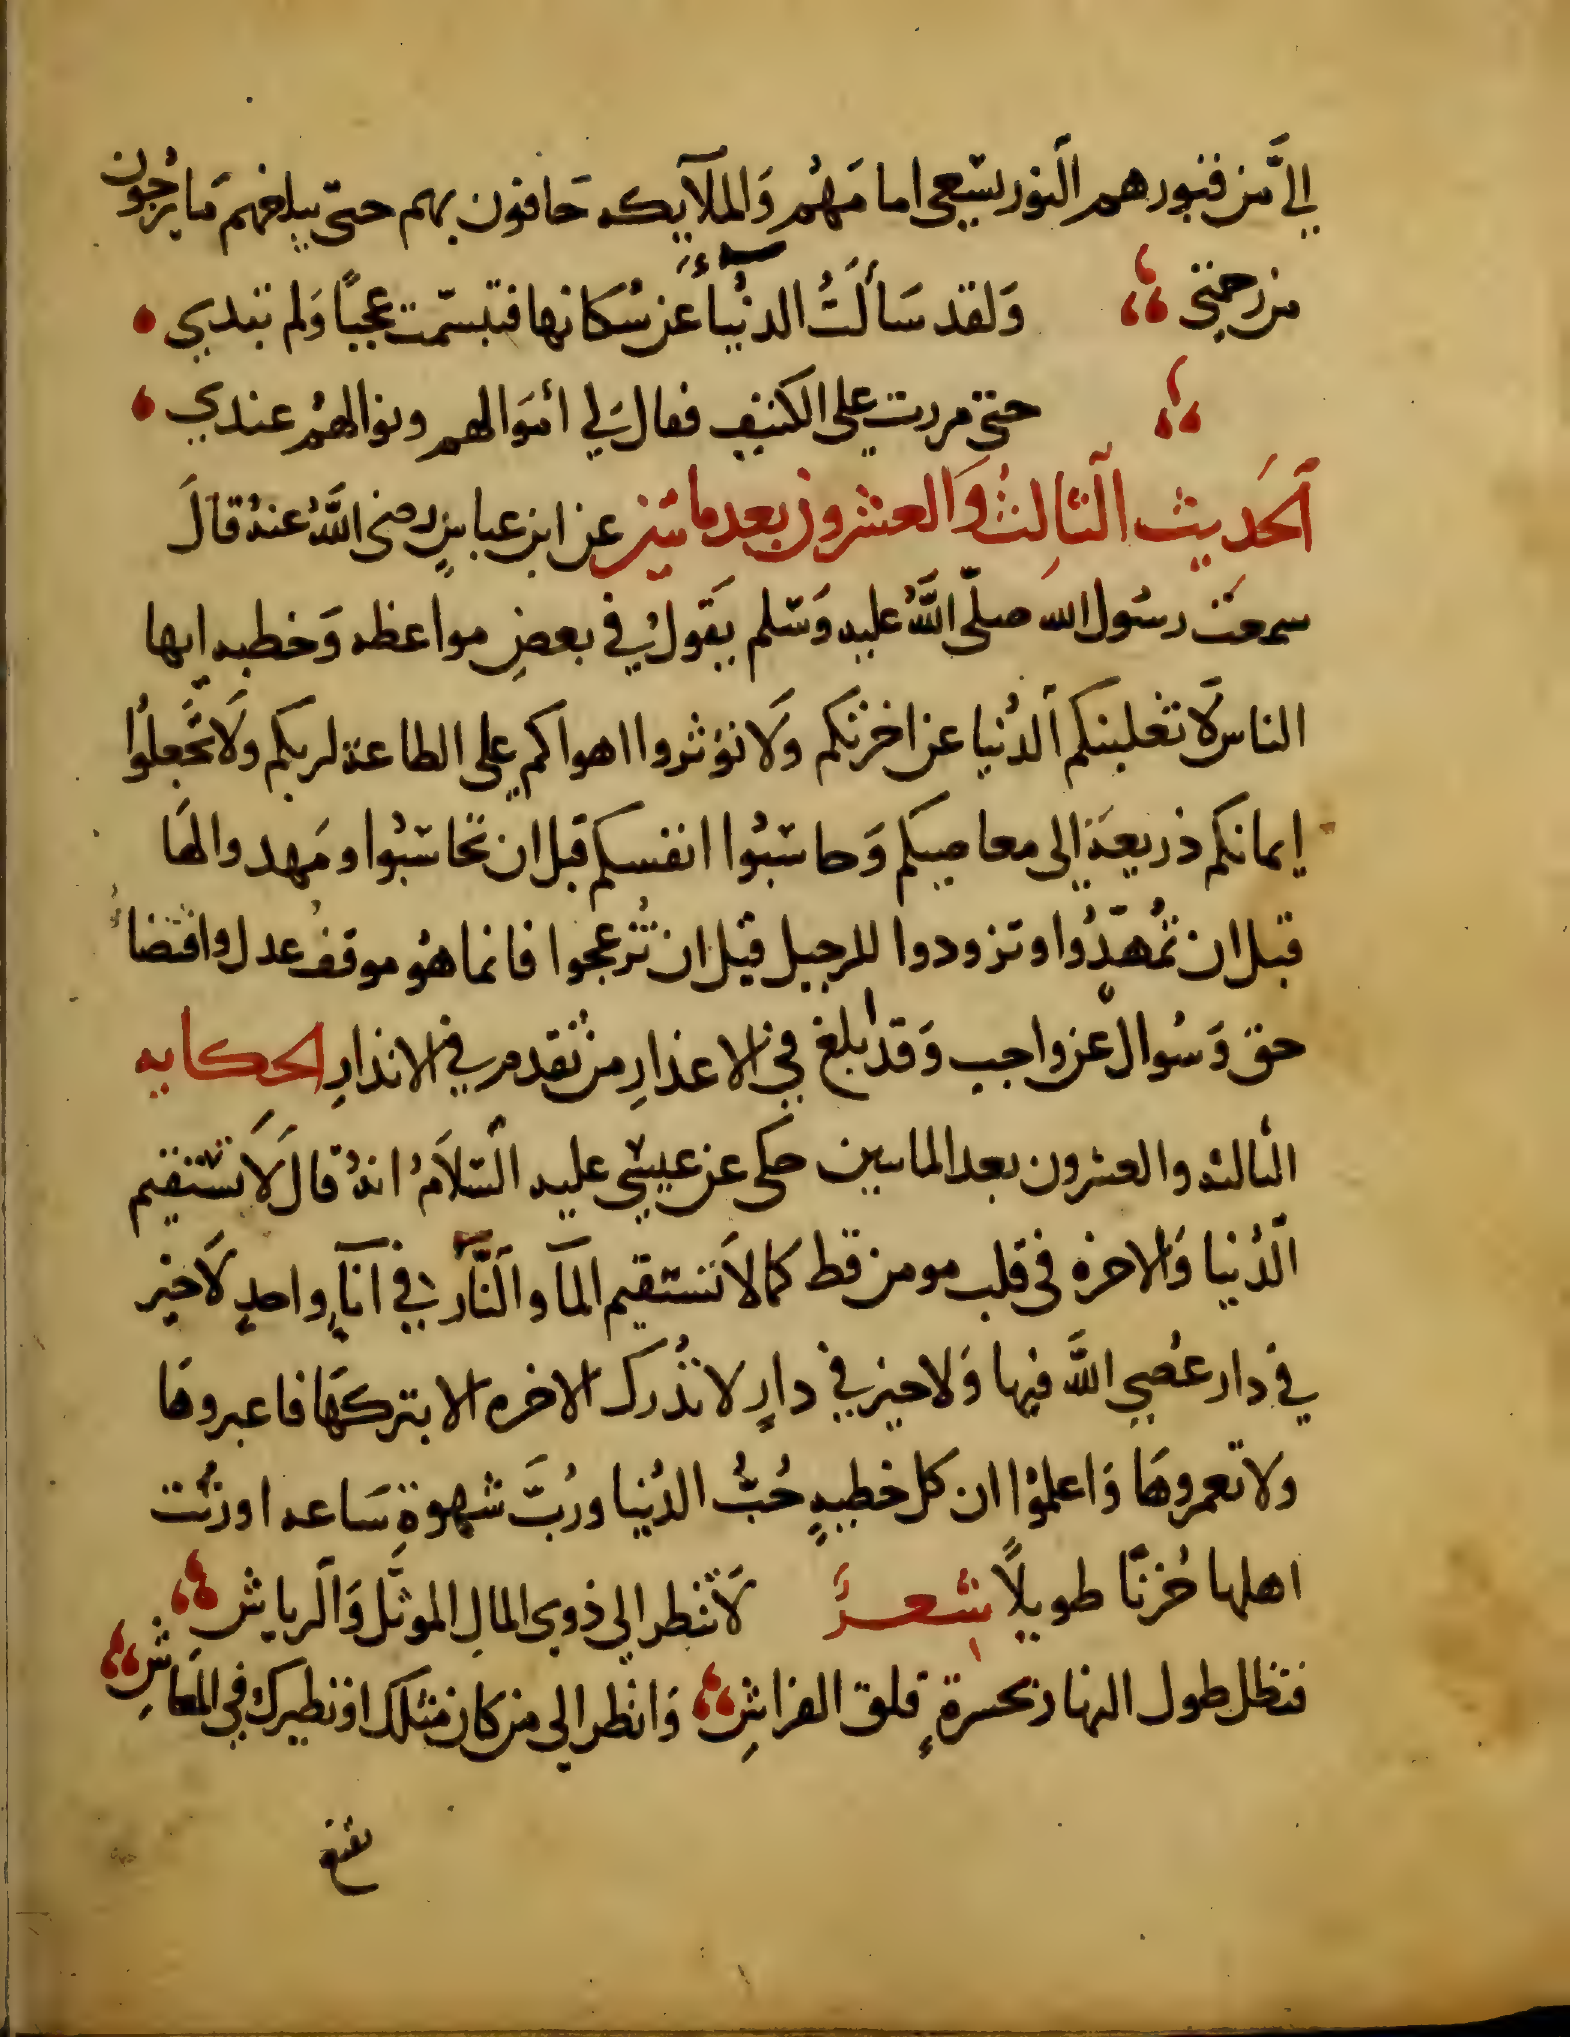 إليَّ من قبورهم اَلنور يسْعى امامَهُم وَالملآيكه حَافون بهم حتىّ يبلغهم مَا يرْجُون
من رحمتي وَلقد سَألتُ الدنُيا عن سُكانها فتبسّمت عجبًا وَلم تبدي
حتى مررت على الكنيف فقال لي أموَالهم ونوالهُم عندي
اَلحَديث اَلثالِثُ وَالعشرون بعد مايتين عن ابن عباسٍ رضى اللَّهُ عنهُ قالَ
سمعَت رسُول الله صلّى اللَّهُ عليه وَسَلم يقولُ في بعضِ مواعظه وَخطبه ايها
الناس لَا تغلبنكم اَلدُنيا عن اخرتكم وَلا تؤثروا اهواكم على الطاعة لربكم ولَا تجَعلوُا
إيمانكم ذريعَة إلى معاصيكم وَحاسَبُوا انفسكم قبل ان تحَاسَبُوا ومَهدوا لهَا
قبل ان تُمهّدُوا وتزودوا للرحيل قبل ان تُزعجوا فانما هُو موقفُ عدل واقتضاءُ
حق وَسُوال عن واجب وَقد ابلغ في الاعذارِ من تُقدم في الانذارِ الحكايه
الثالثه والعشرون بعد المايتين حكى عن عيسٰى عليه السَّلَامُ انهُ قالَ لَا تسْتقيم
الَدُنيا وَالاخرة فى قلب مومن قط كما لَا تستقيم المآ والَنَّار في اناَءٍ واحدٍ لَا خير
في دار عُصي اللَّه فيها وَلا خير في دارٍ لا تُدرك الاخره الا بتركهَا فاعبروهَا
ولا تعمروهَا وَاعلموُا ان كل خطيةٍ حُبُّ الدُنيا ورُبَّ شهوةِ سَاعه اورثت
اهلها حُزنًا طويلًا شعـــر لَا تنظر الي ذوى المالِ الموثَّل وَالَرياش
فتظل طول النهار بحسرةٍ قلق الفراشِ وَانظر الى من كان مثلك او نظيرك في المعَاشِ
تقنع